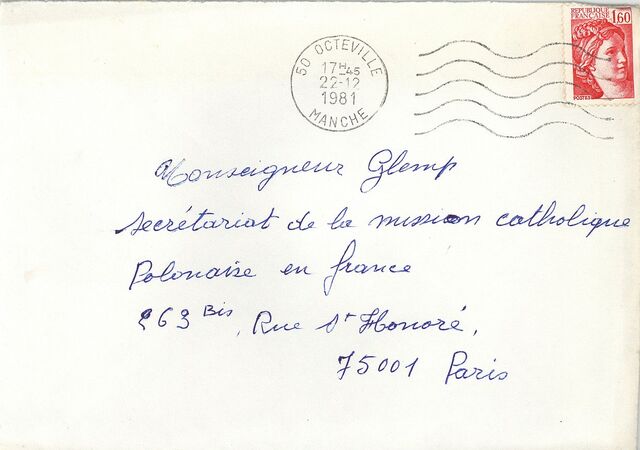 RÉPUBLIQUE
FRANÇAISE 1,60
POSTES
50 OCTEVILLE
17H45
22-12
1981
MANCHE
Monseigneur Glemp
secrétariat de la mission catholique
Polonaise en France
263 Bis, Rue St Honoré,
75001 Paris